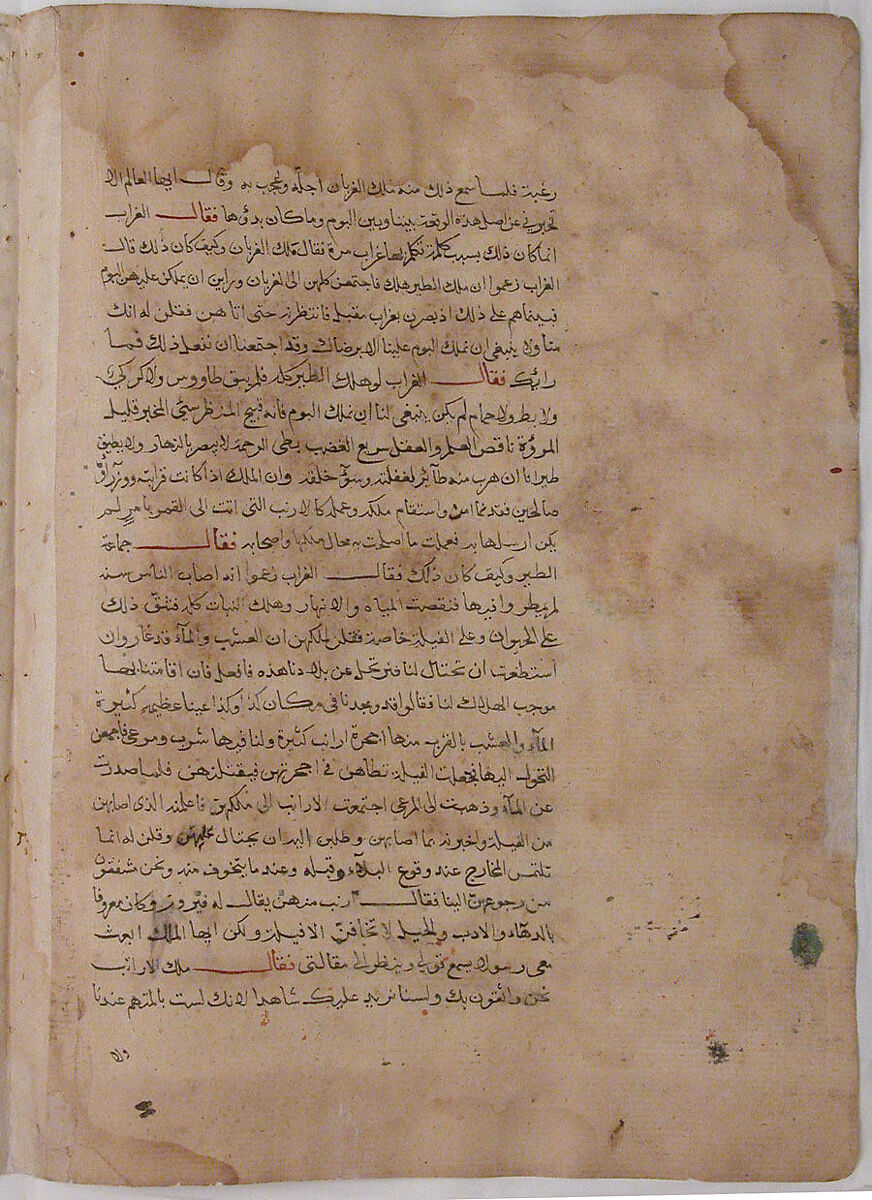 رغبة فلما سمع ذلك منه ملك الغربان اجلّه وعجب به وقال ايها العالم الا
تخبرني عن اصل هذه الوقعة بيننا وبين البوم وما كان بدؤها فقال الغراب
انما كان ذلك بسبب كلمة تكلم بها غراب مرة فقال ملك الغربان وكيف كان ذلك قال
الغراب زعموا ان ملك الطير هلك فاجتمعن كلهن الى الغربان وراين ان يملكن عليهن البوم
فبينما هم على ذلك اذ بصرن بغراب مقبل فانتظرنه حتى اتاهن فقلن له انك
منا ولا ينبغي ان نملك البوم علينا الا برضاك وقد اجتمعنا ان نفعل ذلك فما
رايك فقال الغراب لو هلك الطير كله فلم يبق طاووس ولا كركي
ولا بط ولا حمام لم يكن ينبغي لنا ان نملك البوم فانه قبيح المنظر سئ المخبر قليل
المروّة ناقص العلم والعقل سريع الغضب بطى الرحمة لا يبصر بالنهار ولا يطيق
طيرانا ان هرب منه طآئر لغفلته وسوء خلقه وان الملك اذا كانت قرابته ووزرآؤ
صالحين فقد نما امره واستقام ملكه وعمله كالارنب التي اتت الى القمر بامرٍ لم
يكن ارسلها به فعملت ما اصلحت به محال ملكها واصحابه فقال جماعة
الطير وكيف كان ذلك فقال الغراب زعموا انه اصاب الناس سنة
لم يمطروا فيها فنقصت المياه والانهار وهلك النبات كله فشق ذلك
على الحيوان وعلى الفيلة خاصة فقلن لملكهن ان العشب والمآء قد غار وان
استطعت ان تحتال لنا فنرتحل عن بلادنا هذه فافعل فان اقامتنا بها
موجب الهلاك لنا فقالوا قد وجدنا في مكان كذا وكذا عينا عظيمة كثيرة
المآء والعشب بالقرب منها اجحرة ارانب كثيرة ولنا فيها شرب ومرعى فاجمعن
التحول اليها فجعلت الفيلة تطاهن في اجحرتهن فيقتلنهن فلما صدرت
عن المآء وذهبت الى المرعى اجتمعت الارانب الى ملكهن فاعلمنه الذي اصابهن
من الفيلة واخبرنه بما اصابهن وطلبن اليه ان يحتال عليهن وقلن له انما
تلتمس المخارج عند وقوع البلآء وقبله وعند ما يتخوف منه ونحن مشفقون
من رجوعهن الينا فقال ارنب منهن يقال له فيروز وكان معروفا
بالدهآء والادب والحيل لا تخافن الا فيلة ولكن ايها الملك ابعث
معى رسولا يسمع قولي وينظر الى مقالتي فقال ملك الارانب
نحن واثقون بك ولسنا نريد عليك شاهدا لانك لست بالمتهم عندنا
ولا